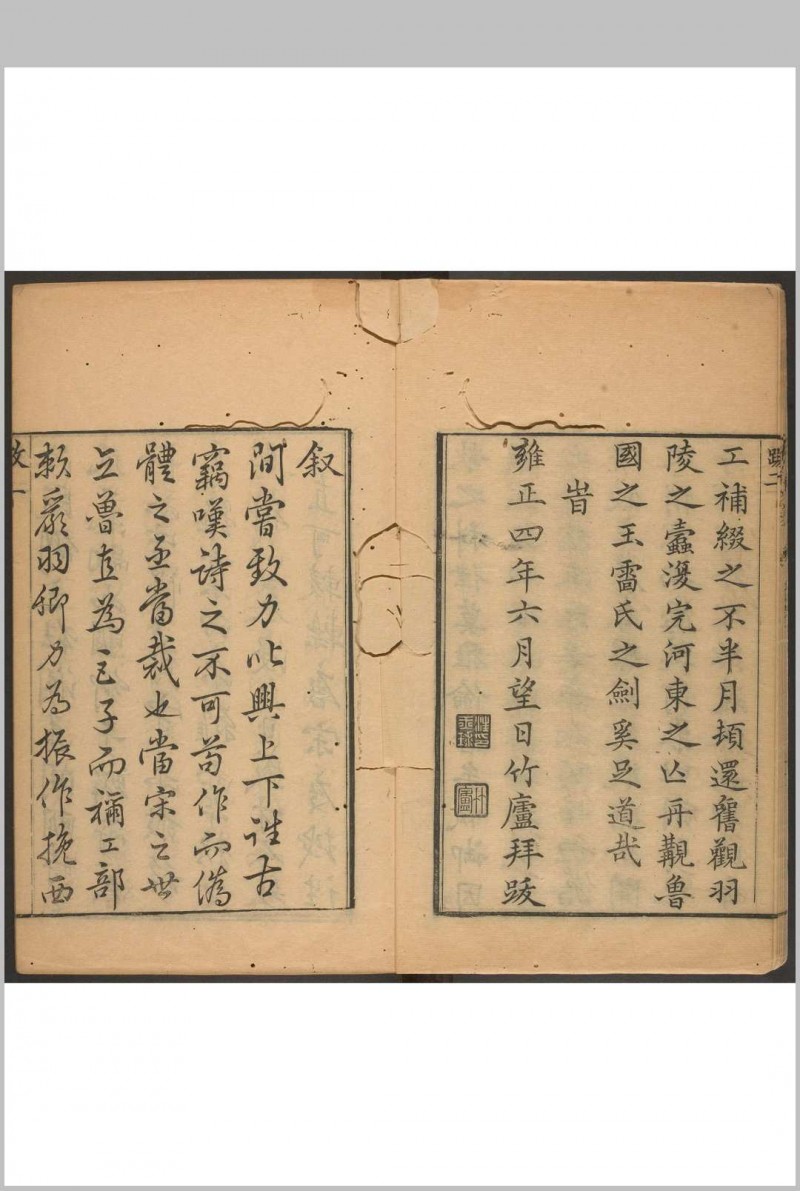 跋二
工補綴之不半月頓還舊觀羽
陵之蠹漫完河東之亾再覯魯
國之玉雷氏之劍奚足道哉
旹
雍正四年六月望日竹廬拜跋
竹廬
叙
間嘗致力比興上下詩古
竊嘆詩之不可苟作而僞
體之亟當裁也當宋之世
之魯直為已子而禰工部
賴嚴羽卿力為振作挽西
叙一